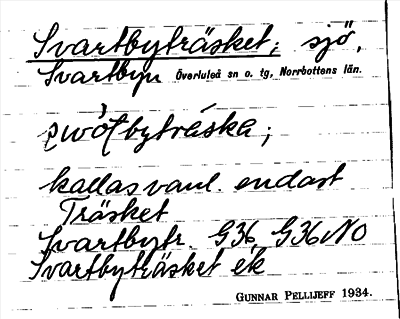 Svartbyträsket; sjö,
Svartbyn Överluleå sn o. tg, Norrbottens län.
kallas vanl. endast
Träsket
Svartbytr. G36, G36NO
Svartbyträsket ek
GUNNAR PELLIJEFF 1934.